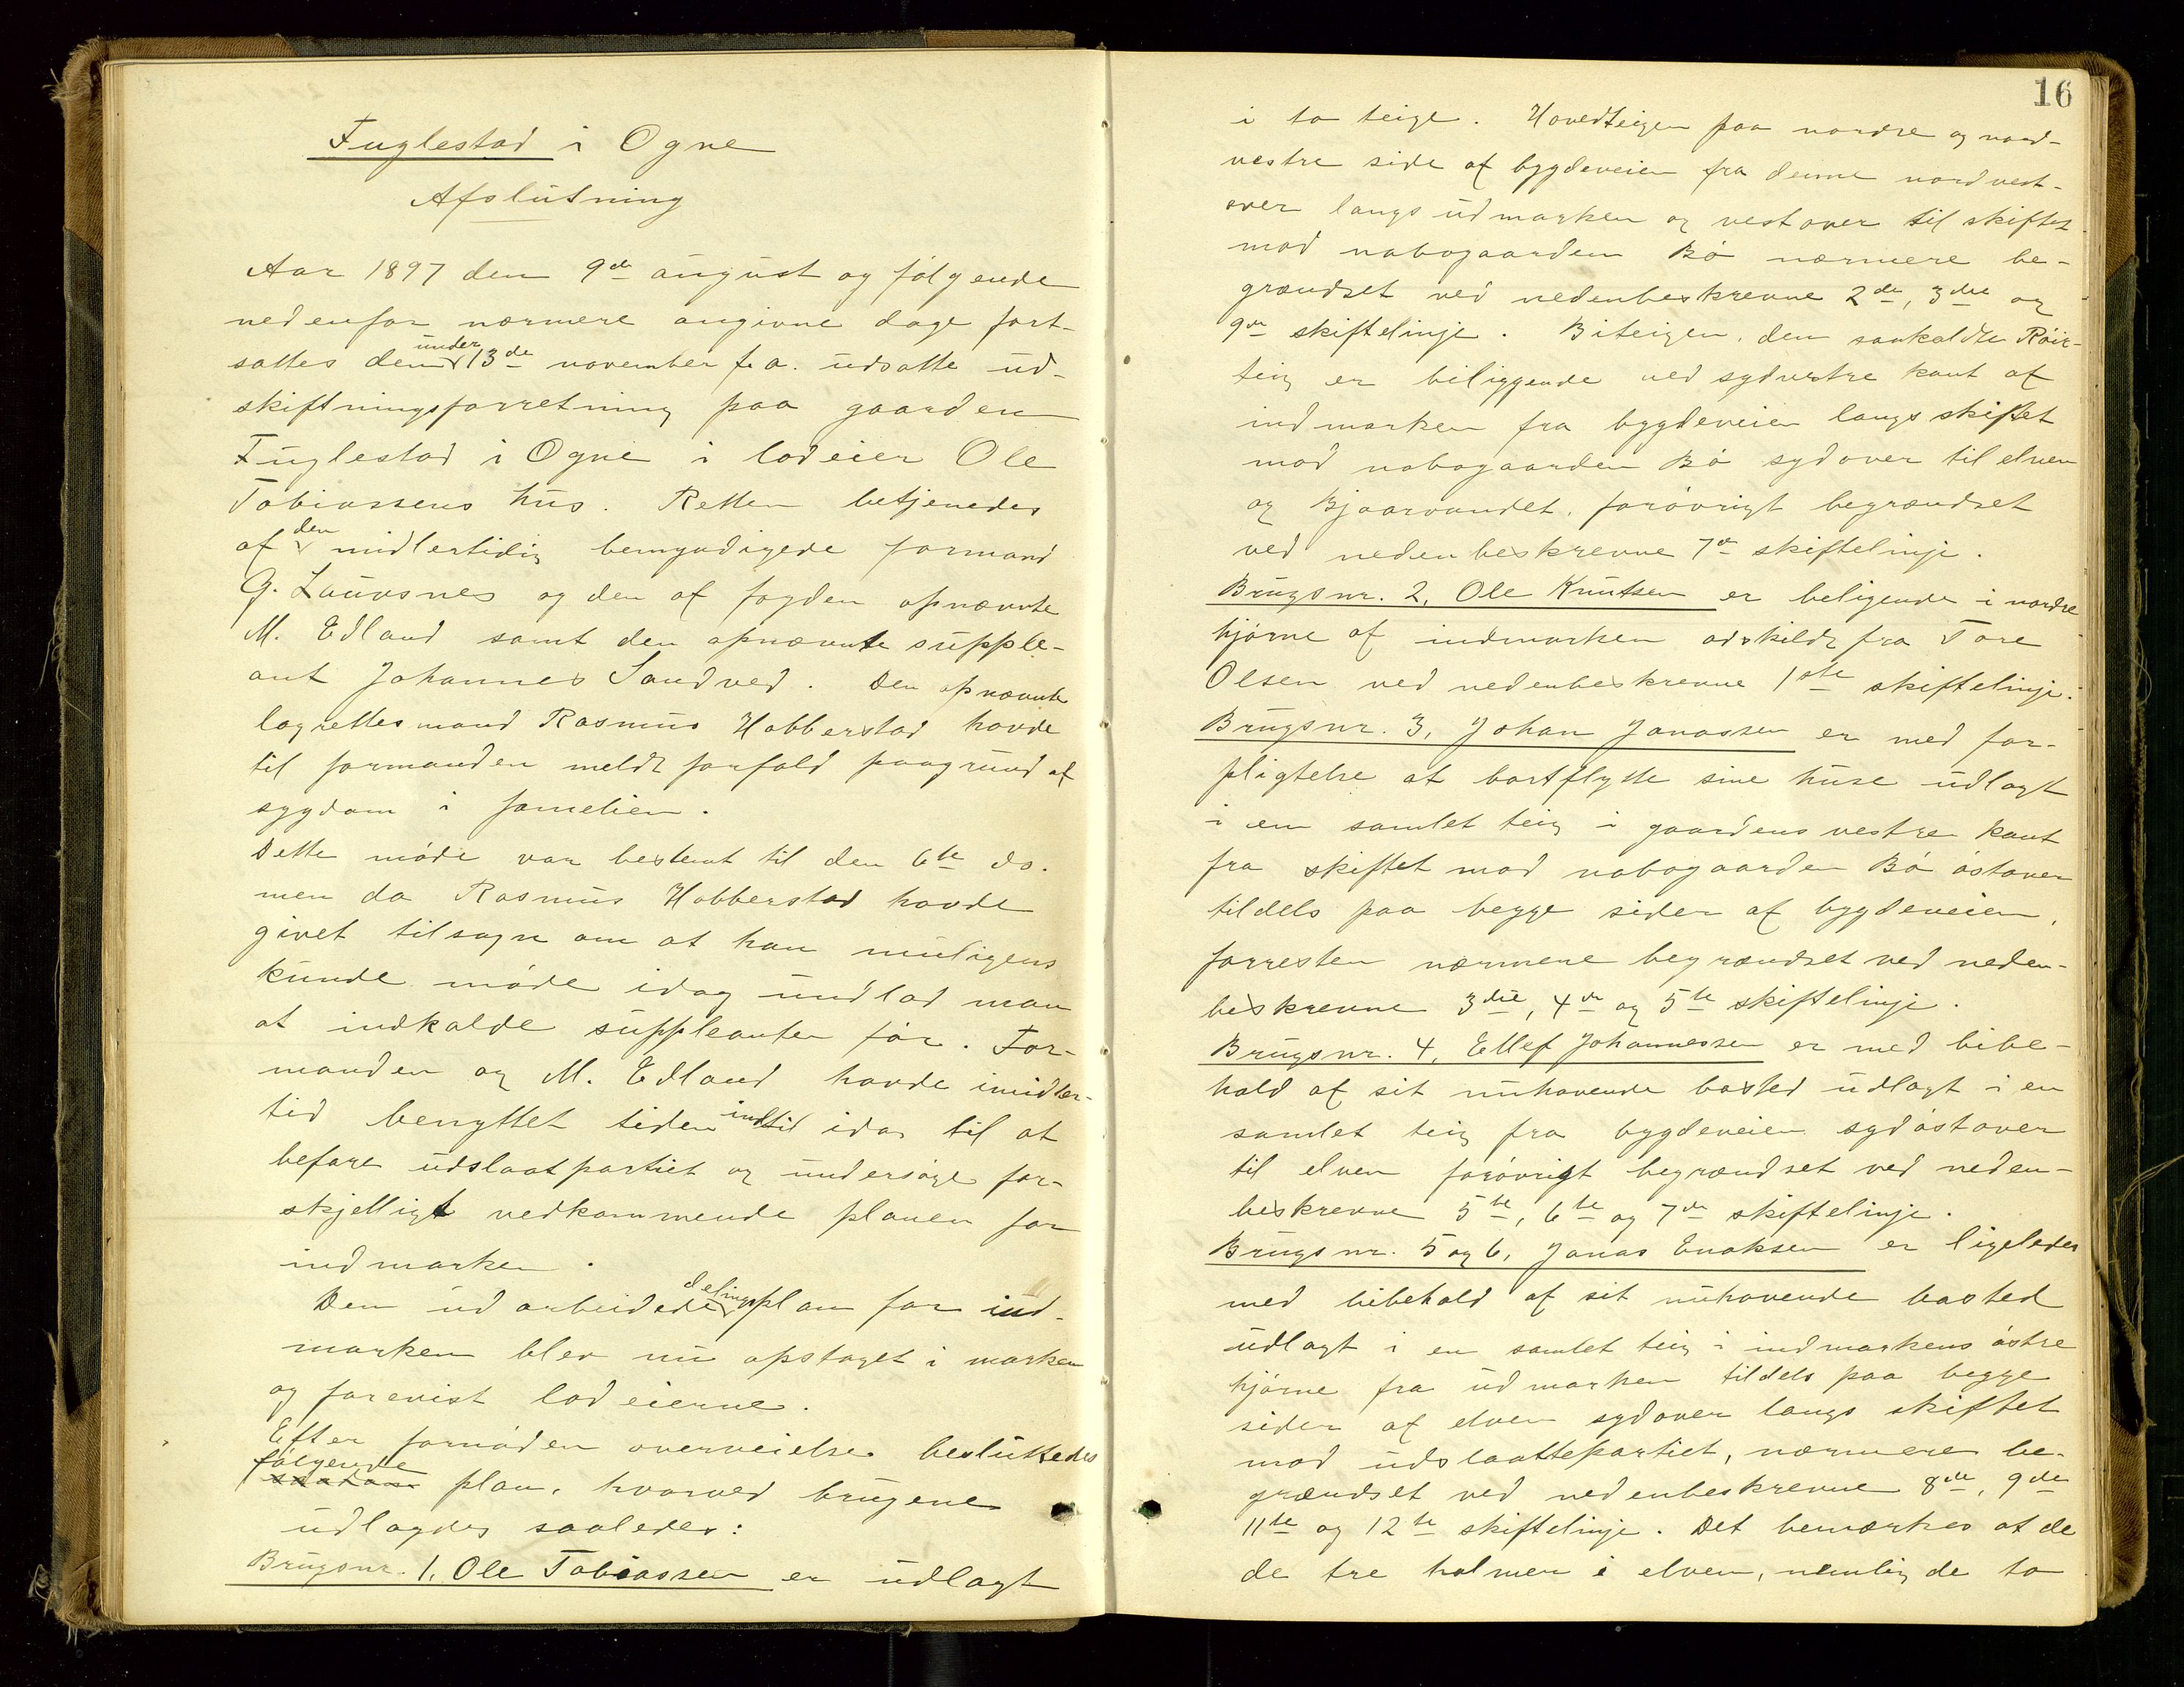 Fuglestad i Ogne
Afslutning
Aar 1897 den 9de august og følgende
nedenfor nærmere angivne dage fort-
sattes den under 13de november f. a. udsatte ud-
skiftningsforretning paa gaarden
Fuglestad i Ogne i lodeier Ole
Tobiassens hus. Retten betjenedes
af den midlertidig bemyndigede formand
G. Lauvsnes og den af fogden opnævnte
M. Edland samt den opnævnte supple-
ant Johannes Sandved. Den opnævnte
lagrettesmand Rasmus Habberstad havde
til formanden meldt forfald paagrund af
sygdom i famelien.
Dette møde var bestemt til den 6te ds.
men da Rasmus Habberstad havde
givet tilsagn om at han muligens
kunde møde idag undlod man
at indkalde suppleanten før. For-
manden og M. Edland havde imidler-
tid benyttet tiden indtil idag til at
befare udslaatpartiet og undersøge for-
skjelligt vedkommende planen for
indmarken.
Den udarbeidede delingsplan for ind-
marken blev nu opstaget i marken
og forevist lodeierne.
Efter fornøden overveielse besluttedes
følgende
saadan plan, hvorved brugene
udlagdes saaledes:
Brugsnr. 1. Ole Tobiassen er udlagt
16
i to teige. Hovedteigen paa nordre og nord-
vestre side af bygdeveien fra denne nordvest-
over langs udmarken og vestover til skiftet
mod nabogaarden Bø nærmere be-
grændset ved nedenbeskrevne 2den, 3die og
9de skiftelinje. Biteigen, den saakaldte Røir-
teig er biliggende ved sydvestre kant af
indmarken fra bygdeveien langs skiftet
mod nabogaarden Bø sydover til elven
og Bjaarvandet, forøvrigt begrændset
ved nedenbeskrevne 7de skiftelinje.
Brugsnr. 2, Ole Knutsen er beligende i nordre
hjørne af indmarken adskildt fra Tore
Olsen ved nedenbeskrevne 1ste skiftelinje.
Brugsnr. 3, Johan Jonassen er med for-
pligtelse at bortflytte sine huse udlagt
i en samlet teig i gaardens vestre kant
fra skiftet mod nabogaarden Bø østover
tildels paa begge sider af bygdeveien,
forresten nærmere begrændset ved neden-
beskrevne 3die, 4de og 5te skiftelinje.
Brugsnr. 4, Ellef Johannessen er med bibe-
hold af sit nuhavende bosted udlagt i en
samlet teig fra bygdeveien sydøstover
til elven forøvrigt begrændset ved neden-
beskrevne 5te, 6te og 7de skiftelinje.
Brugsnr. 5 og 6, Jonas Enoksen er ligeledes
med bibehold af sit nuhavende bosted
udlagt i en samlet teig i indmarkens østre
hjørne fra udmarken tildels paa begge
sider af elven sydover langs skiftet
mod udslaattepartiet, nærmere be-
grændset ved nedenbeskrevne 8de, 9de
11te og 12te skiftelinje. Det bemærkes at de
de tre holmer i elven, nemlig de to